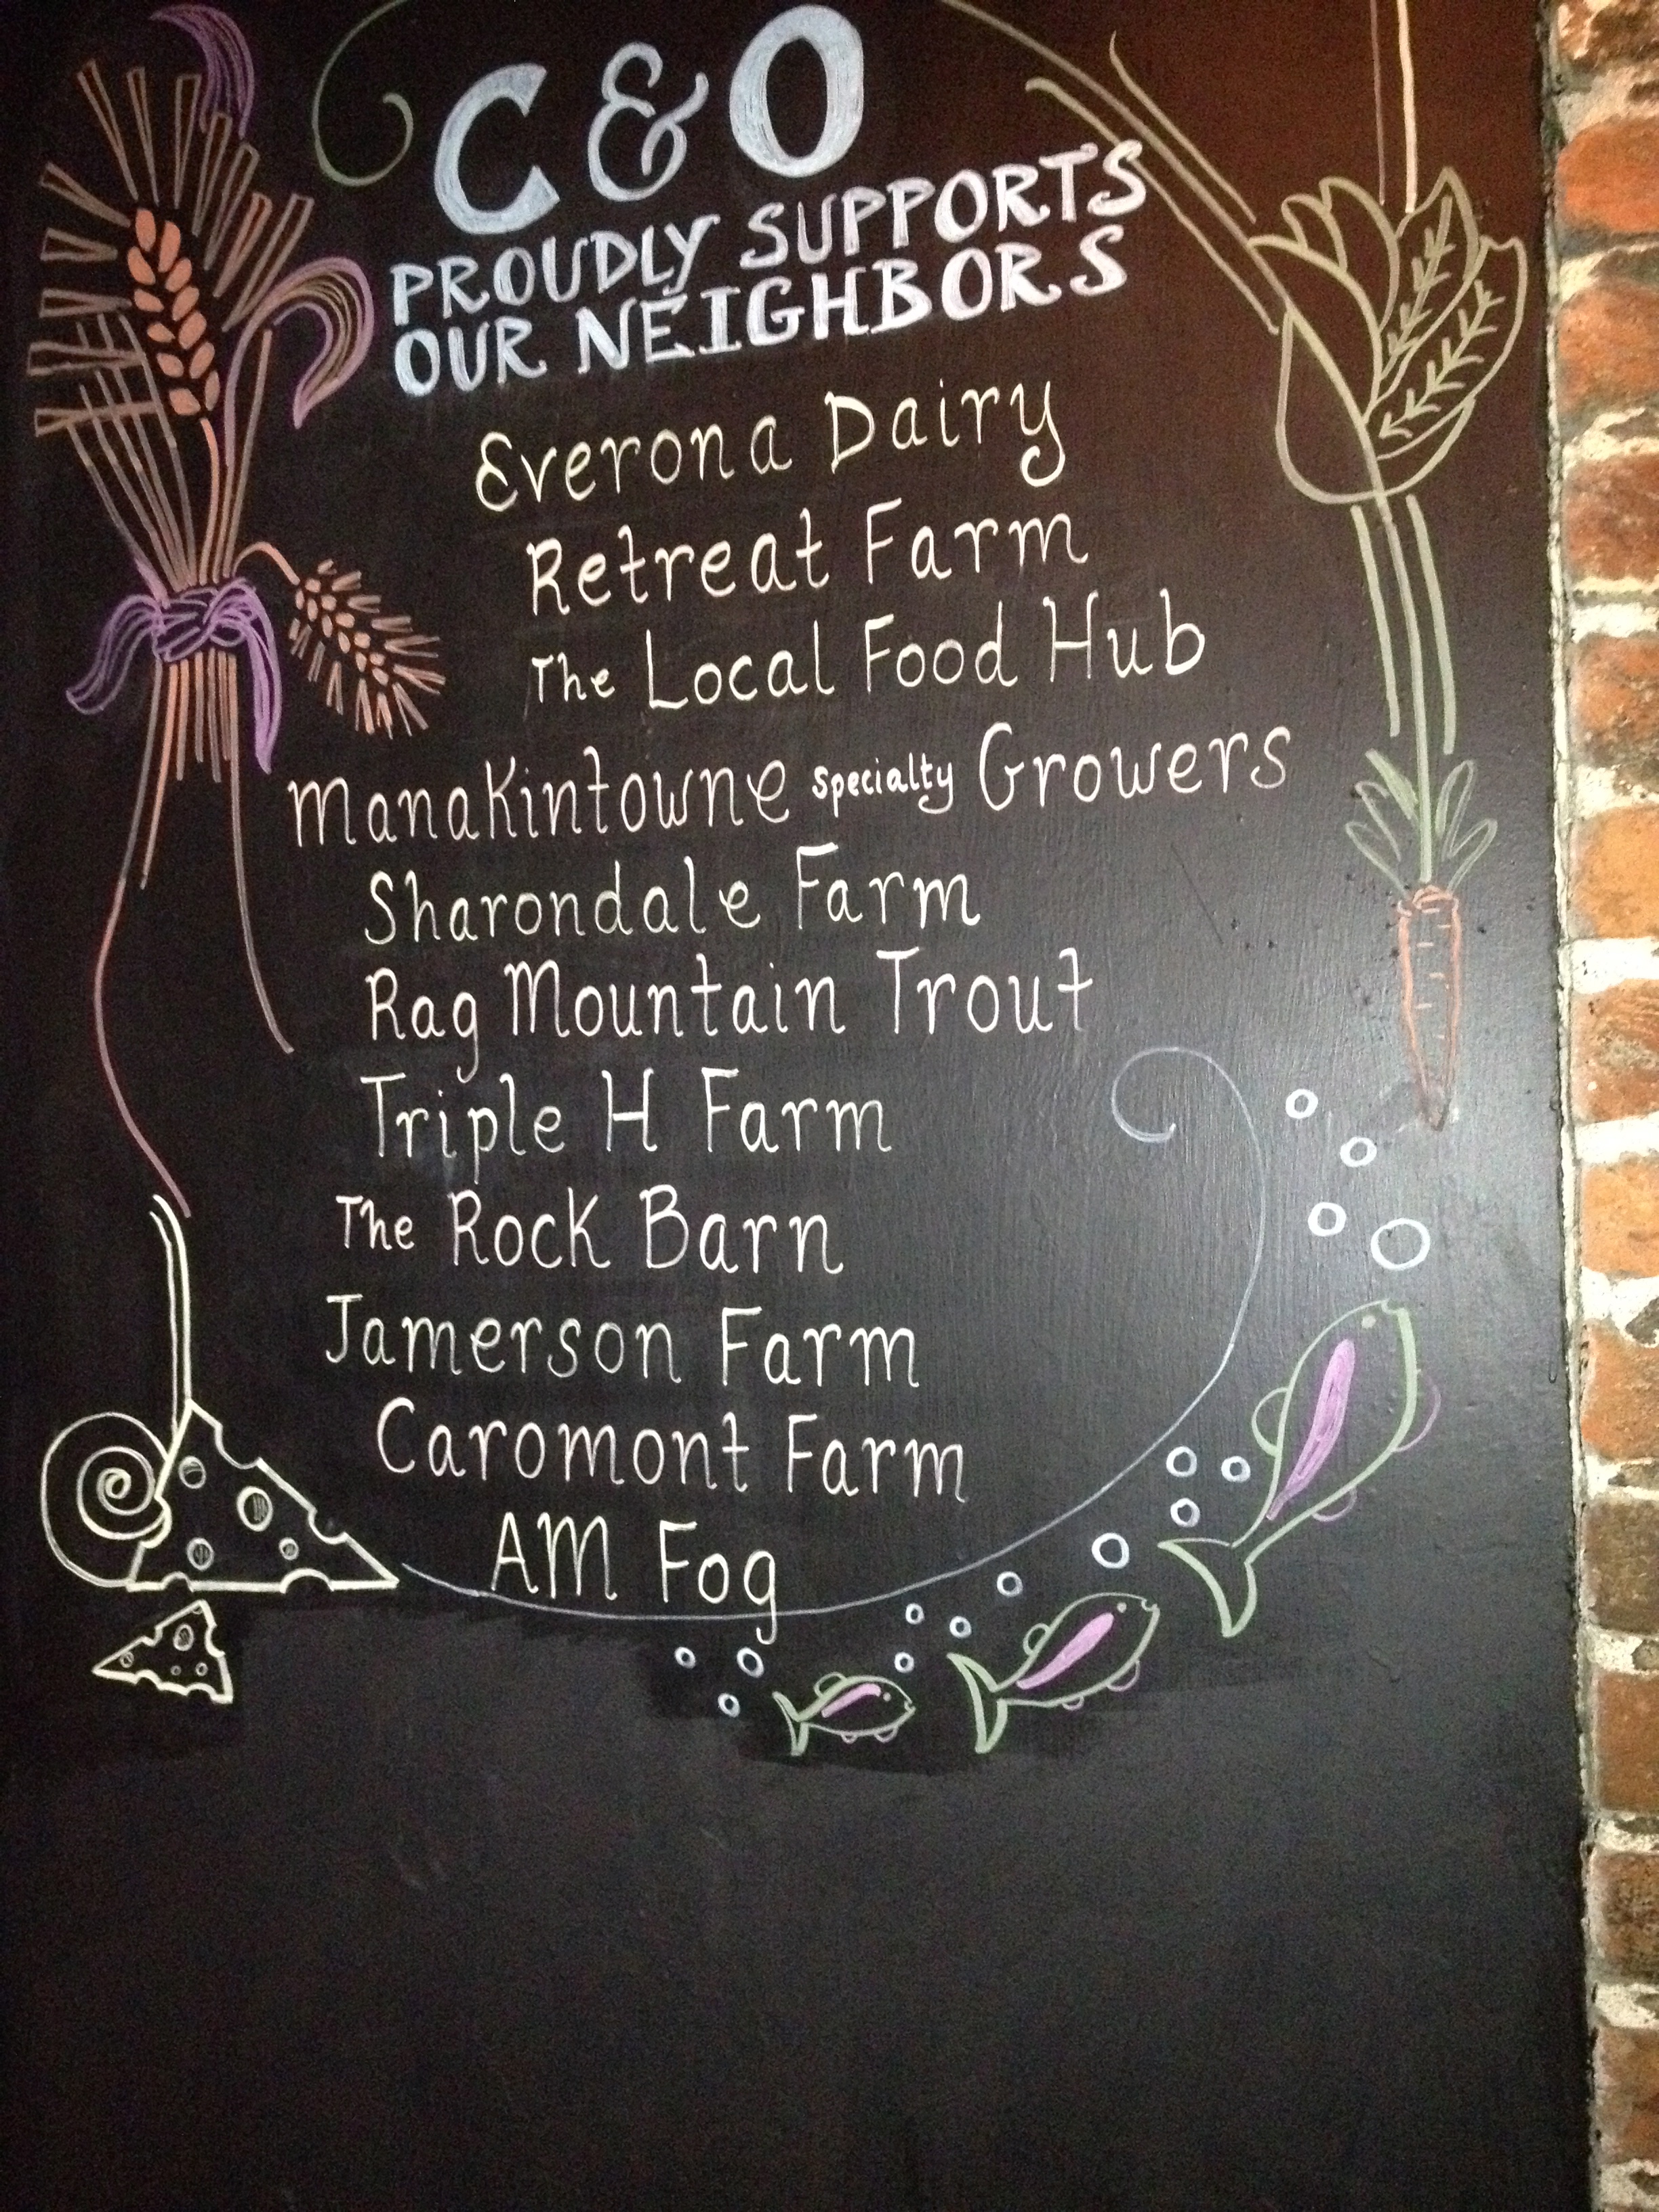 C & O
PROUDLY SUPPORTS
OUR NEIGHBORS
Everona Dairy
Retreat Farm
The Local Food Hub
ManaKintowne Specialty Growers
Sharondale Farm
Rag Mountain Trout
Triple H Farm
The Rock Barn
Jamerson Farm
Caromont Farm
AM Fog